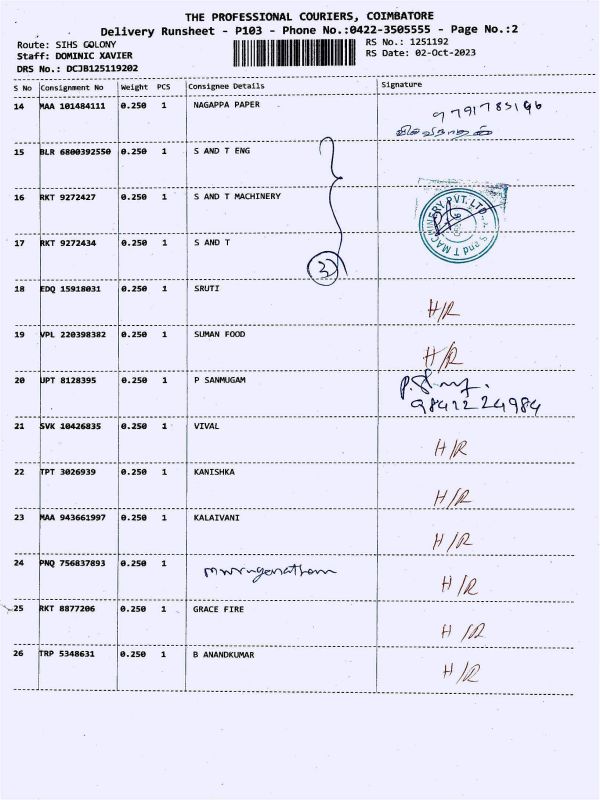 THE PROFESSIONAL COURIERS, COIMBATORE
Delivery Runsheet - P103 - Phone No.:0422-3505555 - Page No.:2
Route: SIHS COLONY
Staff: DOMINIC XAVIER
DRS No.: DCJB125119202
RS No.: 1251192
RS Date: 02-Oct-2023
S No Consignment No Weight PCS Consignee Details Signature
14 MAA 101484111 0.250 1 NAGAPPA PAPER
15 BLR 6800392550 0.250 1 S AND T ENG
16 RKT 9272427 0.250 1 S AND T MACHINERY
17 RKT 9272434 0.250 1 S AND T
3
S and T MACHINERY PVT. LTD
18 EDQ 15918031 0.250 1 SRUTI H/R
19 VPL 220398382 0.250 1 SUMAN FOOD H/R
20 UPT 8128395 0.250 1 P SANMUGAM
9842224984
21 SVK 10426835 0.250 1 VIVAL H/R
22 TPT 3026939 0.250 1 KANISHKA H/R
23 MAA 943661997 0.250 1 KALAIVANI H/R
24 PNQ 756837893 0.250 1 H/R
25 RKT 8877206 0.250 1 GRACE FIRE H/R
26 TRP 5348631 0.250 1 B ANANDKUMAR H/R